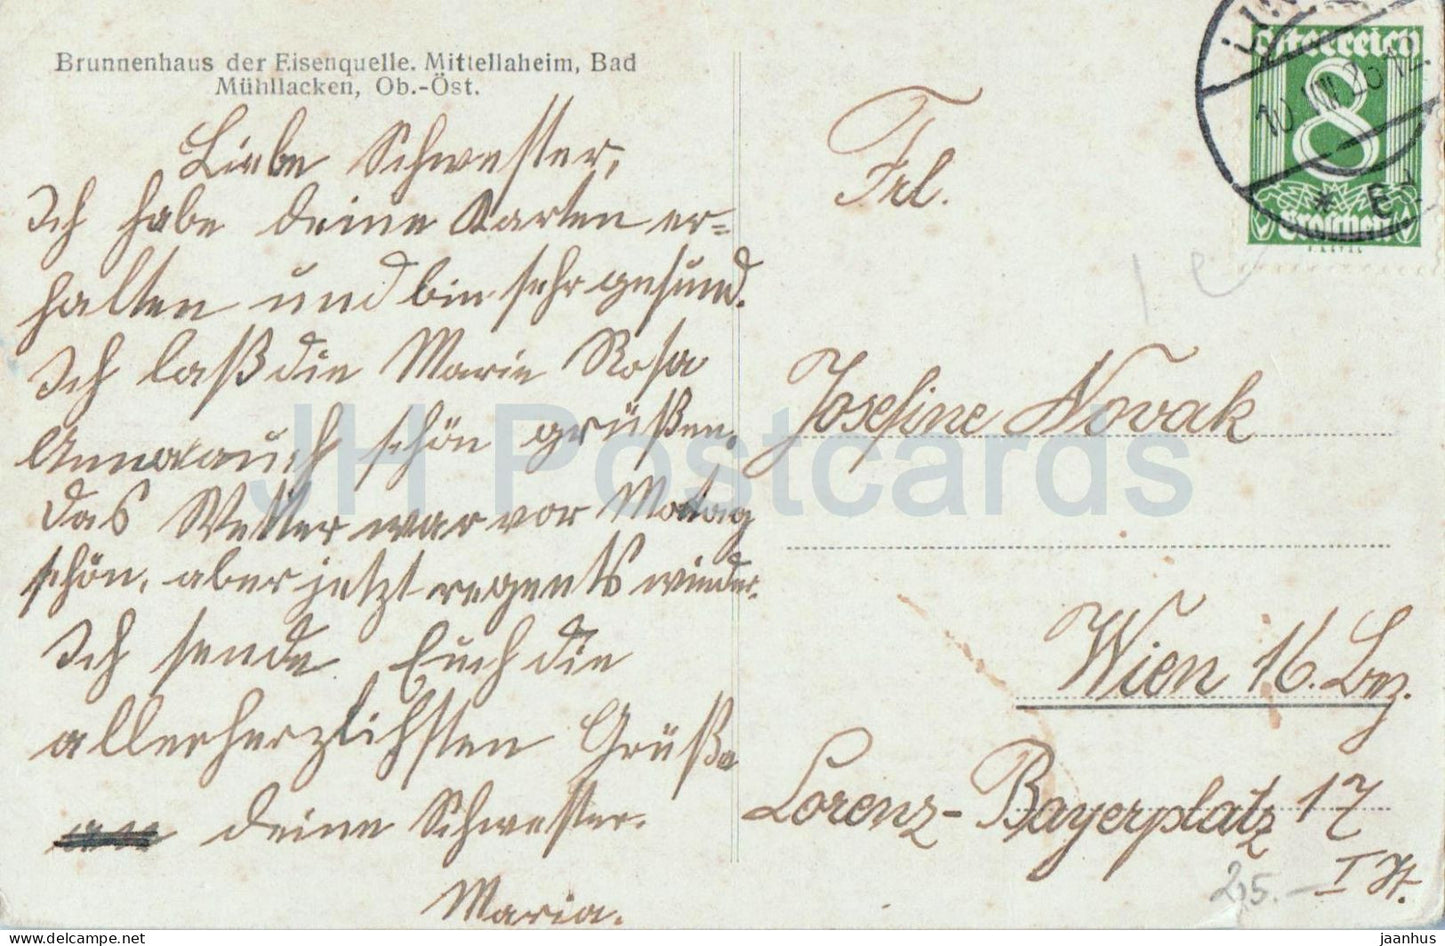 Brunnenhaus der Eisenquelle. Mittellaheim, Bad
Mühllacken, Ob.-Öst.
Liebe Schwester,
Ich habe deine Karten er=
halten und bin sehr gesund.
Ich laß die Marie Rosa
Anna auch schön grüßen.
Das Wetter war vor Montag
schön, aber jetzt regents wieder.
Ich sende Euch die
allerherzlichsten Grüße
deine Schwester.
Maria.
Österreich
8
Groschen
10. VIII. 26 12
* E
Frl.
Josefine Novak
Wien 16. Bez.
Lorenz-Bayerplatz 17
I St.
25.-
JH Postcards
jaanhus